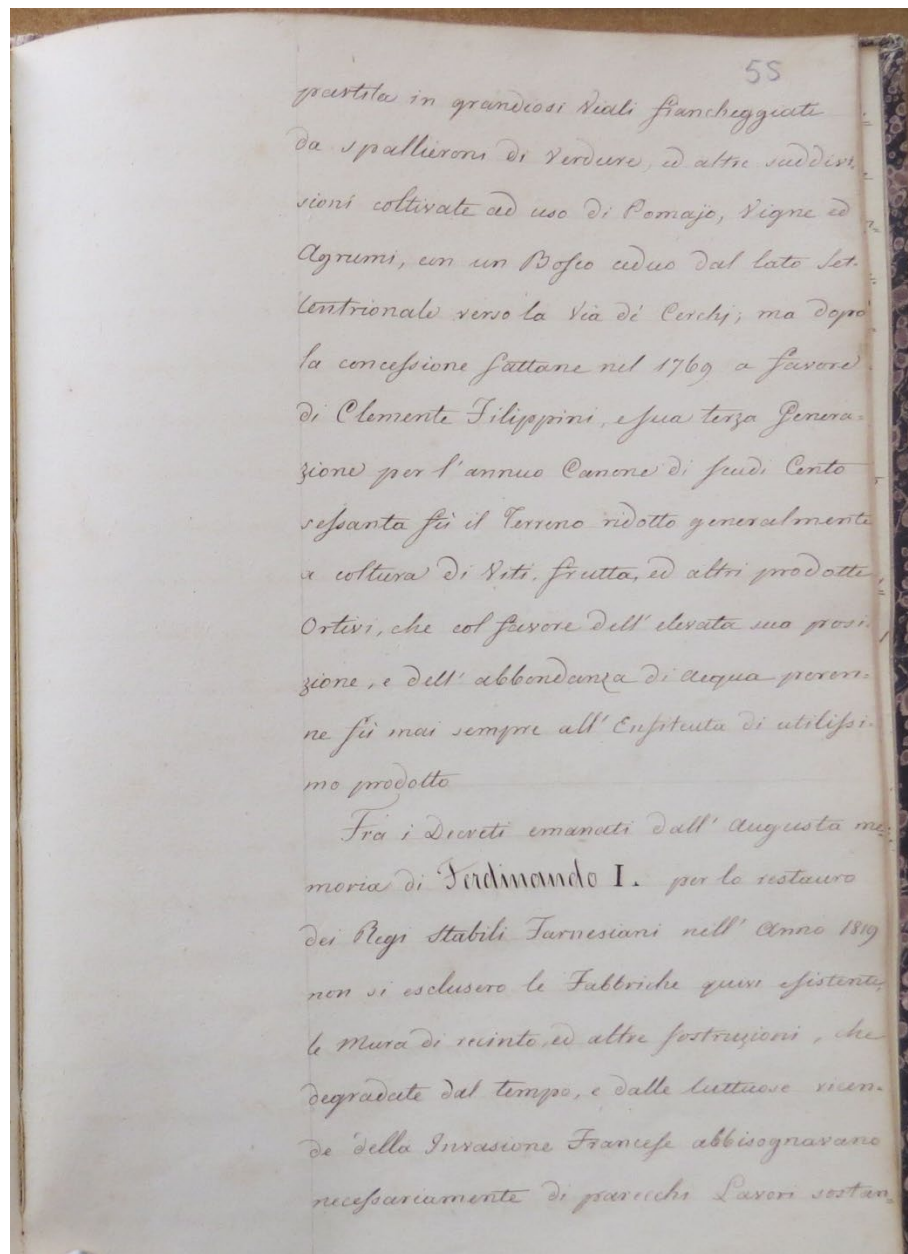 55
partita in grandiosi Viali fiancheggiati
da spallieroni di Verdure, ed altre suddivi-
sioni coltivate ad uso di Pomajo, Vigne ed
Agrumi, con un Bosco ceduo dal lato Set-
tentrionale verso la Via de' Cerchj; ma dopo
la concessione fattane nel 1769 a favore
di Clemente Filippini, e sua terza Genera-
zione per l'annuo Canone di scudi Cento
sessanta fù il Terreno ridotto generalmente
a coltura di Viti, frutta, ed altri prodotti
Ortivi, che col favore dell'elevata sua posi
zione, e dell'abbondanza di acqua peren-
ne fù mai sempre all'Enfiteuta di utilissi-
mo prodotto
Frà i Decreti emanati dall'Augusta me-
moria di Ferdinando I. per lo restauro
dei Regi Stabili Farnesiani nell'Anno 1819
non si esclusero le Fabbriche quivi esistenti,
le Mura di recinto, ed altre sostruzioni, che
degradate dal tempo, e dalle luttuose vicen-
de della Invasione Francese abbisognavano
necessariamente di parecchi Lavori sostan-